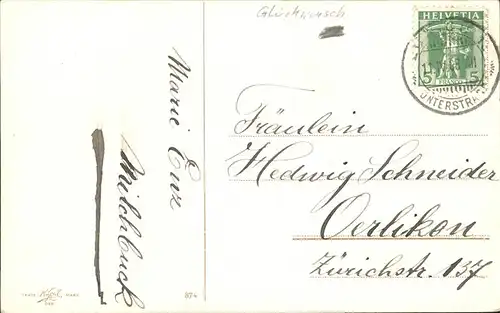 Glückwunsch
HELVETIA
5 5
FRANCO
UNTERSTRASS
Marie Enz
Milchbuck
Fräulein
Hedwig Schneider
Oerlikon
Zürichstr. 137
874